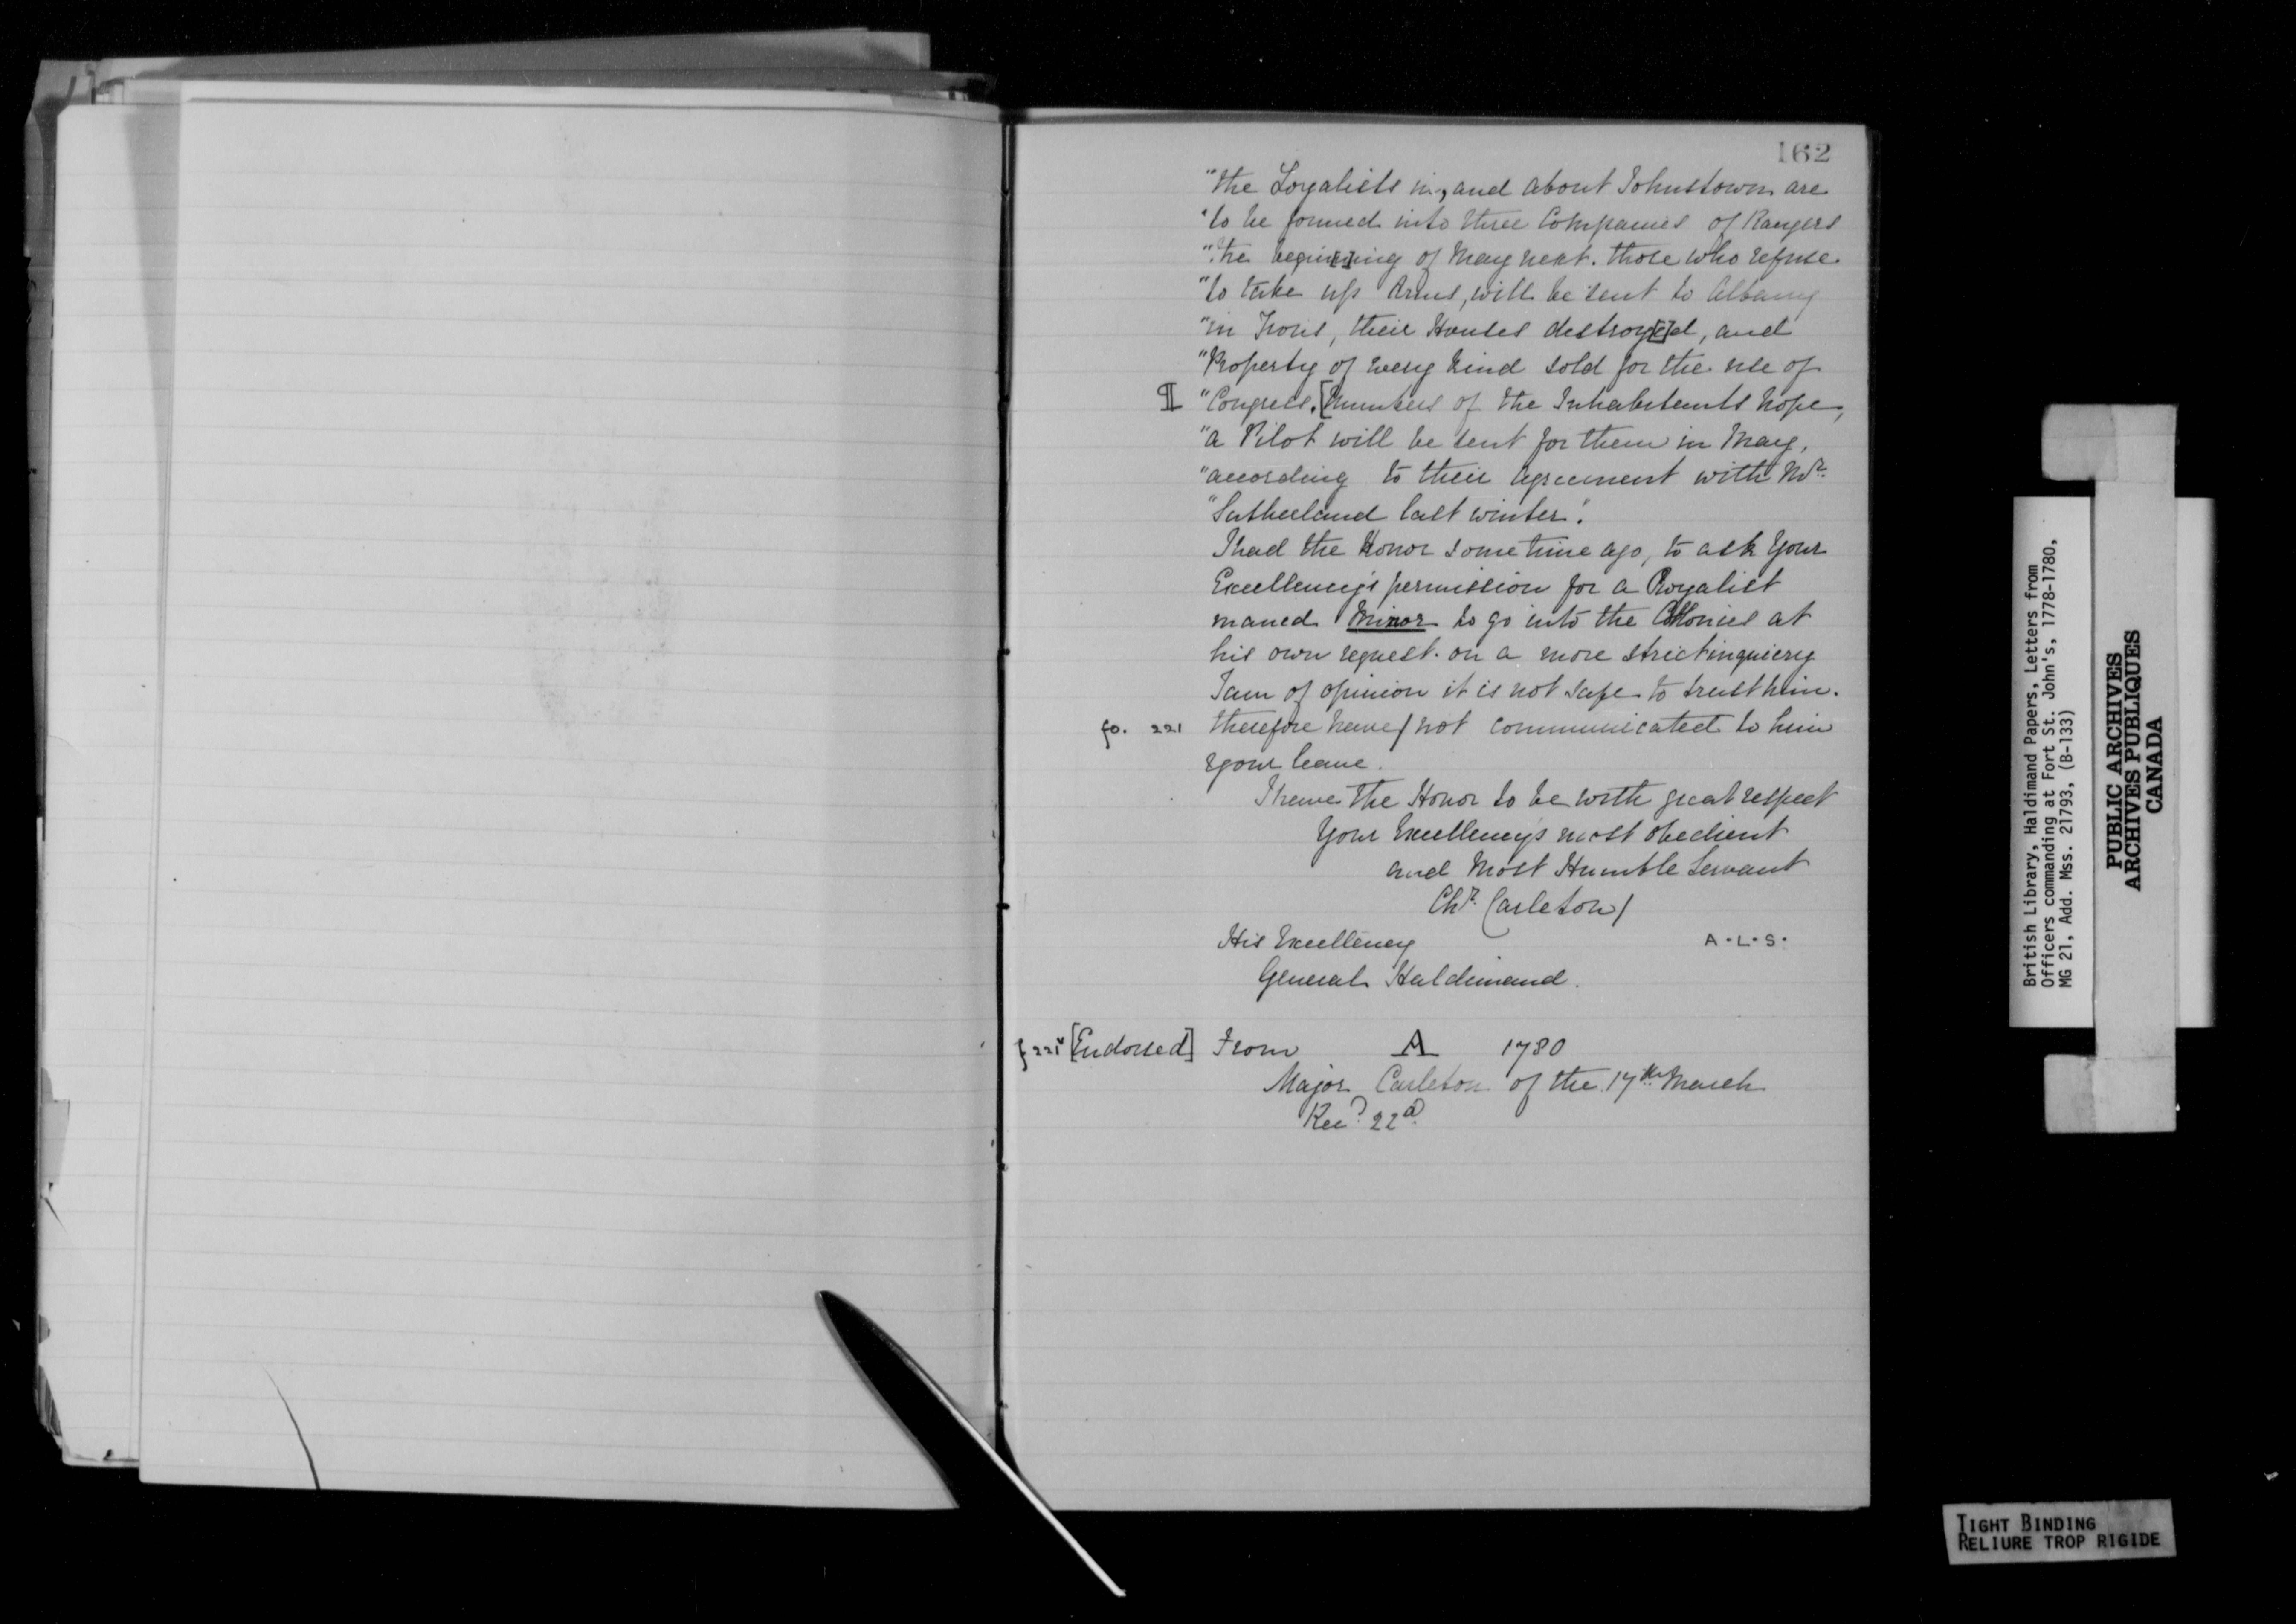 162
"the Loyalists in, and about Johnstown are
"to be formed into three Companies of Rangers
"the begin[n]ing of May next. those who refuse
"to take up Arms, will be sent to Albany
"in Irons, their Houses destroy[e]d, and
"Property of every kind sold for the use of
¶ "Congress. [Numbers of the Inhabitants hope,
"a Pilot will be sent for them in May,
"according to their agreement with Mr.
"Sutherland last winter".
I had the Honor some time ago, to ask Your
Excellency's permission for a Royalist
maned Minor to go into the Colonies at
his own request. on a more strict inquiery
I am of opinion it is not safe to trust him.
fo. 221 therefore have / not communicated to him
your leave.
I have the Honor to be with great respect
Your Excellency's most obedient
and Most Humble Servant
Chr. Carleton/
His Excellency A.L.S.
General Haldimand.
f 221v [Endorsed] From A 1780
Major Carleton of the 17th March
Recd. 22d.
British Library, Haldimand Papers, Letters from
Officers commanding at Fort St. John's, 1778-1780,
MG 21, Add. Mss. 21793, (B-133)
PUBLIC ARCHIVES
ARCHIVES PUBLIQUES
CANADA
TIGHT BINDING
RELIURE TROP RIGIDE